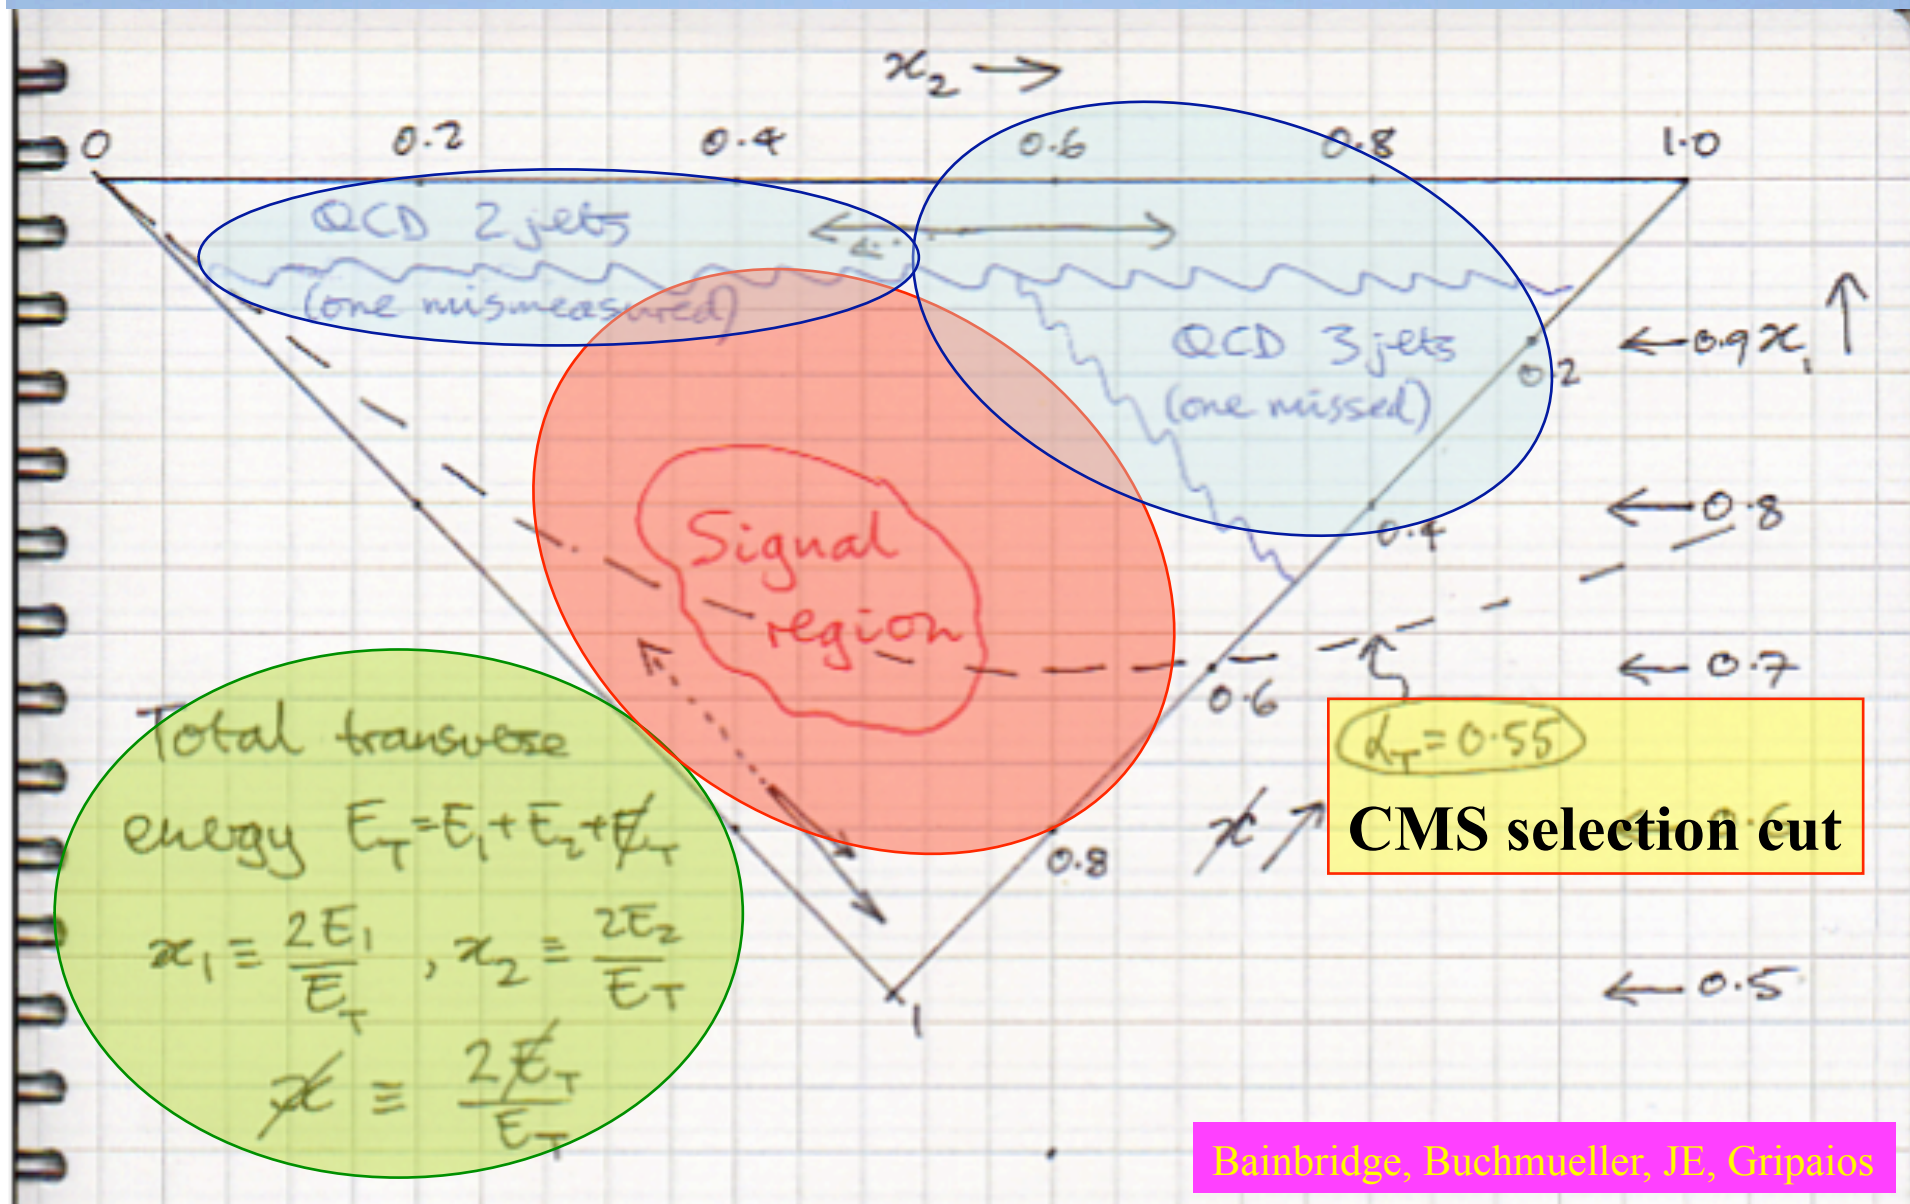 x₂ →
0 0.2 0.4 0.6 0.8 1.0
QCD 2 jets
(one mismeasured)
QCD 3 jets
(one missed)
← 0.9 x₁ ↑
0.2
← 0.8
0.4
Signal
region
← 0.7
0.6
α_T = 0.55
CMS selection cut
← 0.6
x̸ ↗
0.8
← 0.5
1
Total transverse
energy E_T = E₁ + E₂ + E̸_T
x₁ ≡ 2E₁/E_T , x₂ ≡ 2E₂/E_T
x̸ ≡ 2E̸_T/E_T
Bainbridge, Buchmueller, JE, Gripaios